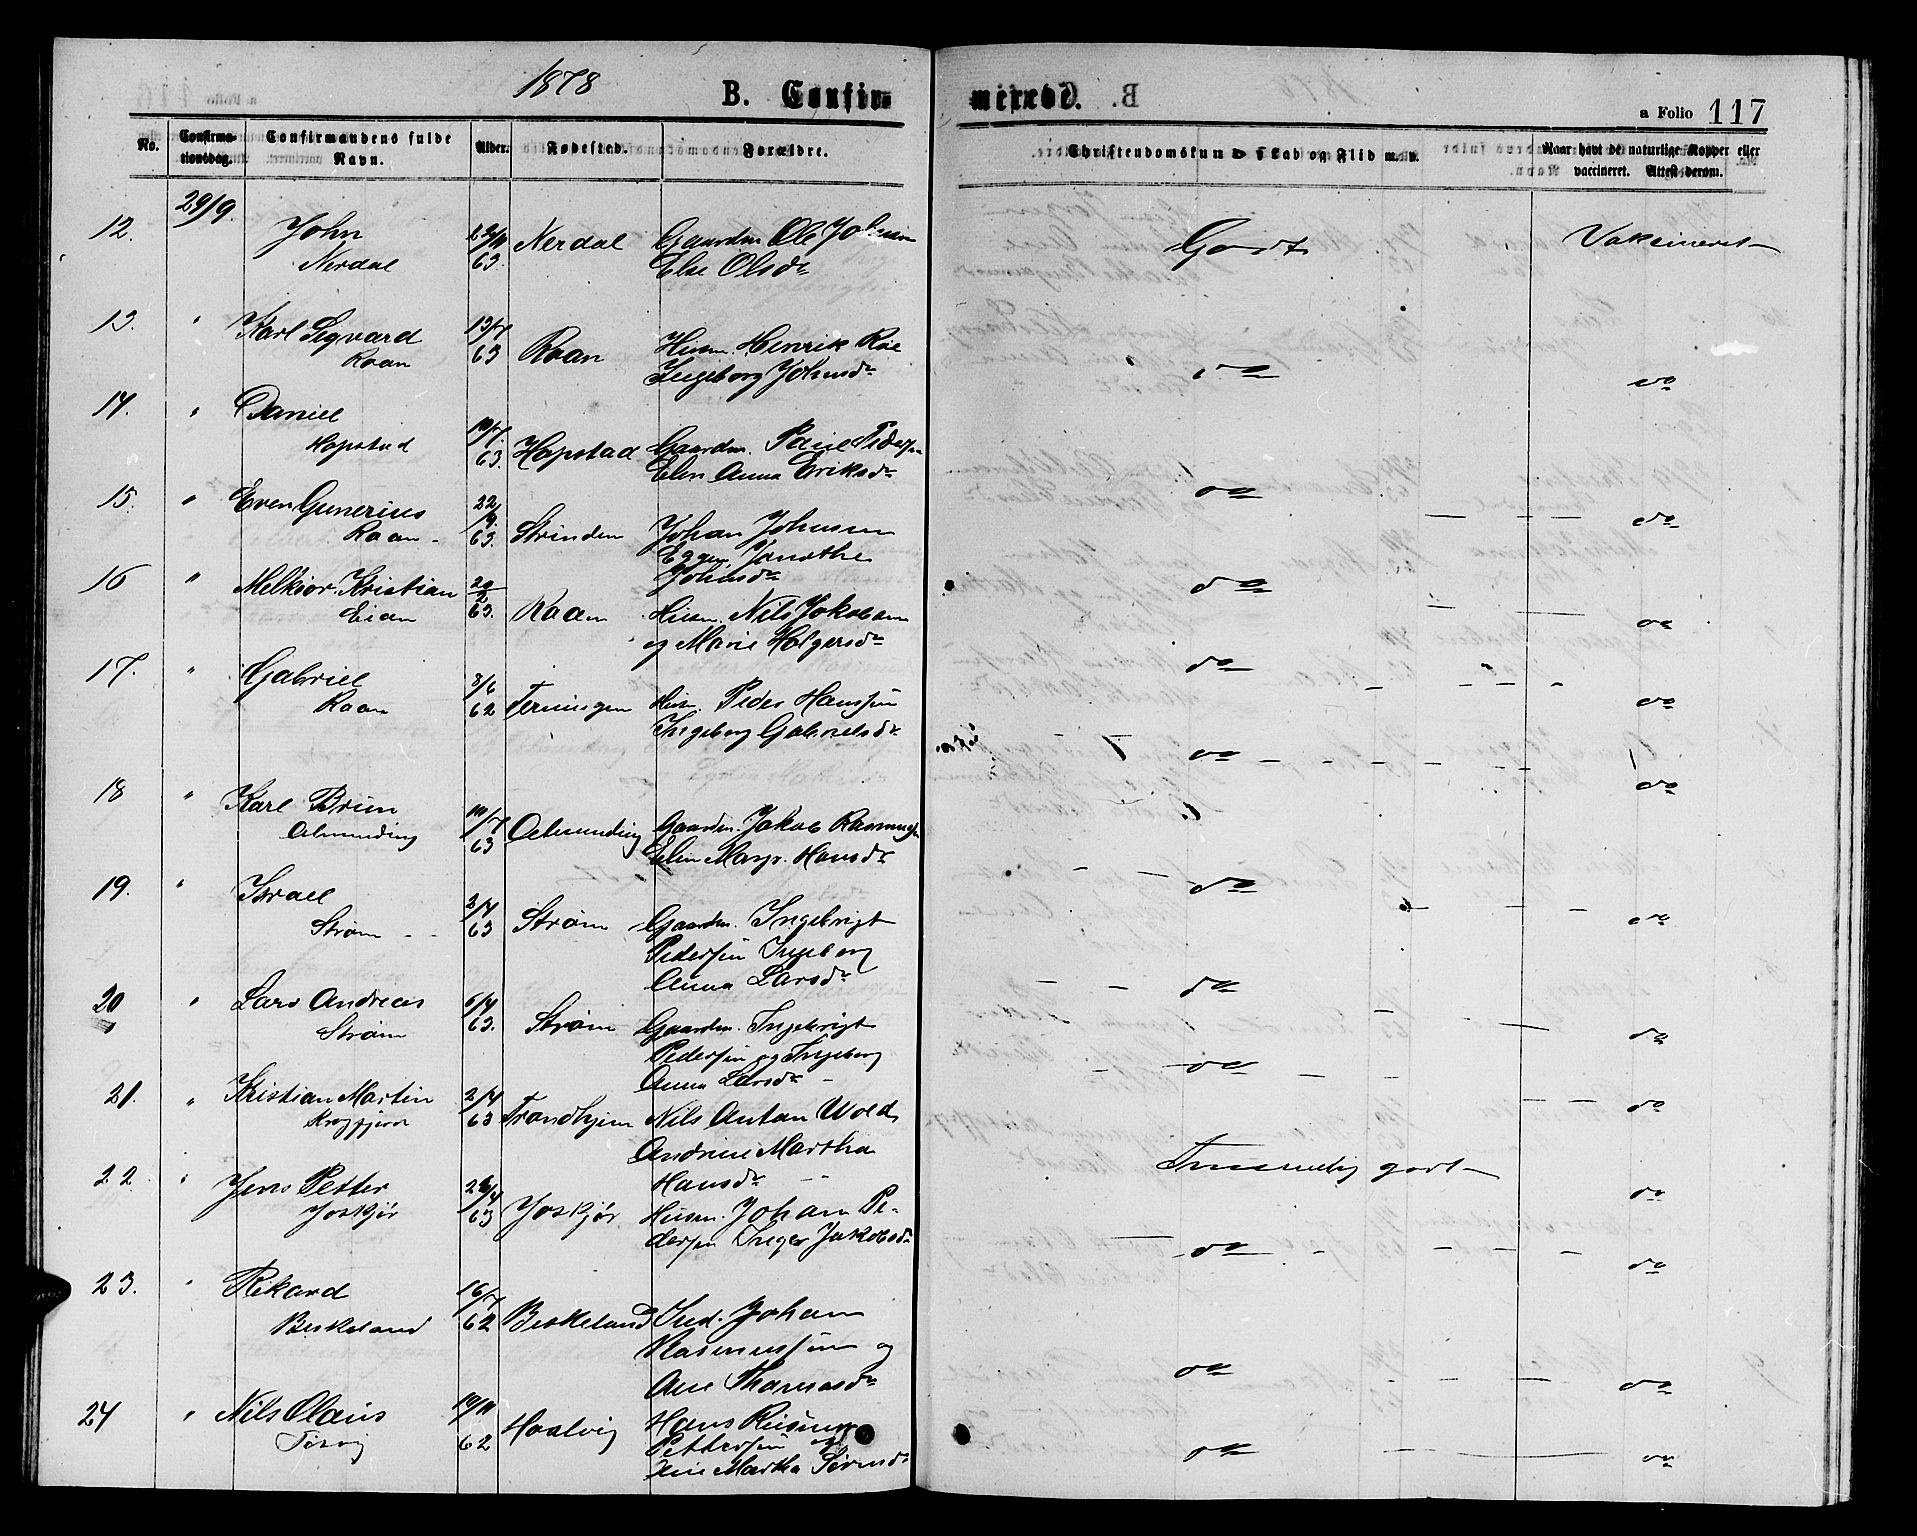 1878
B. Confir
merede.
a Folio 117
No.
Confirma-
tionsdag.
Confirmandens fulde
Navn.
Alder.
Fødested.
Forældre.
Christendomskundskab og Flid m. v.
Naar havt de naturlige Kopper eller
vaccineret. Attest derom.
12. 29/9 John Nerdal 63. Nerdal Gaardm. Ole Johnsen
Else Olsdr
Godt Vaksineret
13. " Karl Sigvard
Raan 13/7 63 Raan Husm. Henrik Roe
Ingeborg Johnsdr
do do
14. " Daniel
Hopstad 10/7 63. Hopstad Gaardm. Paul Pedersen
Elen Anna Eriksdr
do do
15. " Even Gunerius
Raan 22/9 63. Strinden Johan Johnsen
Eggen, Janethe
Johnsdr
do do
16 " Melkior Kristian
Eian 20/2 63. Raan Husm. Nils Jakobsen
og Marie Holgersdr
do do
17. " Gabriel
Raan 3/6 62 Terningen Husm. Peder Hanssen
Ingeborg Gabrielsdr
do do
18 " Karl Brun
Almending 10/7 63 Almending Gaardm. Jakob Rasmussen
Elen Margr. Hansdr
do do
19. " Israel
Strøm 3/4 63 Strøm Gaardm. Ingebrigt
Pedersen Ingeborg
Anna Larsdr
do do
20 " Lars Andreas
Strøm 6/4 63. Strøm Gaardm. Ingebrigt
Pedersen og Ingeborg
Anna Larsdr
do do
21. " Kristian Martin
2/4 63 Trondhjem Nils Anton Wold
Andrine Martha
Hansdr
Temmelig godt do
22. " Jens Petter
Joskjør 26/4 63 Joskjør Husm. Johan Pe-
dersen Inger Jakobsdr
do do
23. " Rikard
Beskeland 16/7 62 Beskeland Ind. Johan
Rasmussen og
Ane Thomasdr
do do
24 " Nils Olaus
19/11 62 Hoslvig Hans Rasmus
Pettersen og
Ane Martha Sørensdr
do do